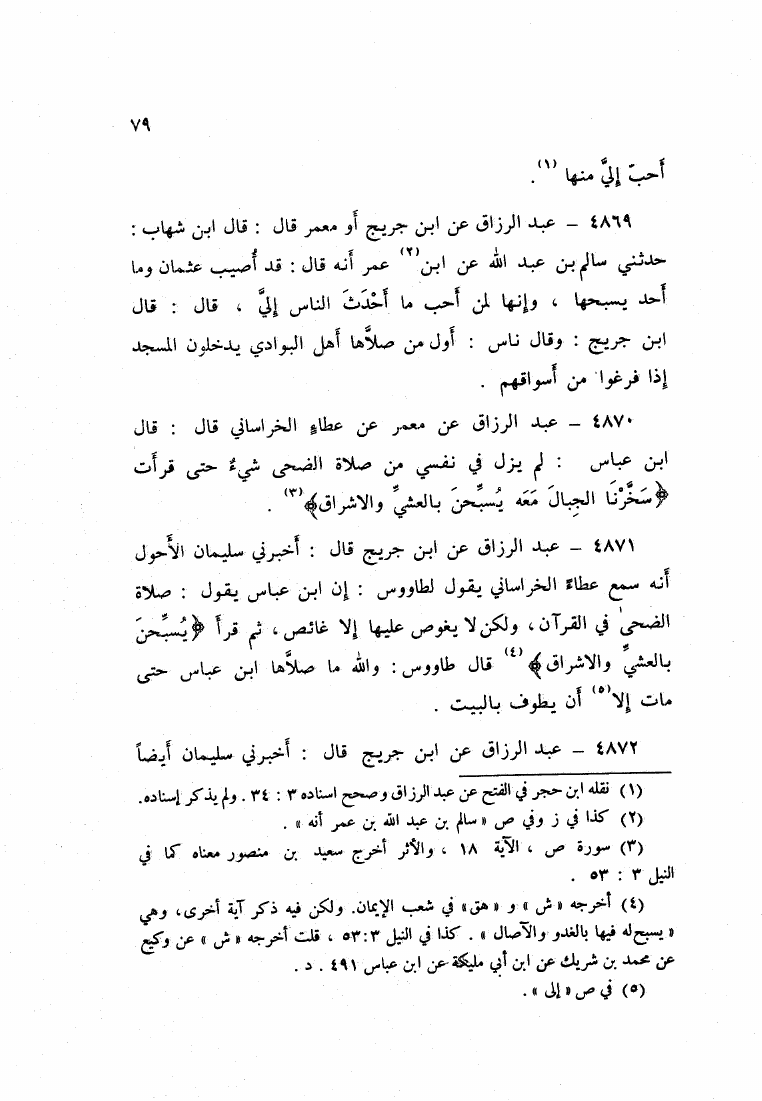 ٧٩
أَحبّ إِليَّ منها (١) .
٤٨٦٩ – عبد الرزاق عن ابن جريج أَو معمر قال : قال ابن شهاب :
حدثني سالم بن عبد الله عن ابن (٢) عمر أَنه قال : قد أُصيب عثمان وما
أَحد يسبحها ، وإِنها لمن أَحب ما أَحْدَثَ الناس إِليَّ ، قال : قال
ابن جريج : وقال ناس : أَول من صلاَّها أَهل البوادي يدخلون المسجد
إِذا فرغوا من أَسواقهم .
٤٨٧٠ – عبد الرزاق عن معمر عن عطاءٍ الخراساني قال : قال
ابن عباس : لم يزل في نفسي من صلاة الضحى شيءٌ حتى قرأَت
﴿سَخَّرْنَا الجِبالَ مَعَه يُسبِّحنَ بالعشيِّ والاشراق﴾ (٣) .
٤٨٧١ – عبد الرزاق عن ابن جريج قال : أَخبرني سليمان الأَحول
أَنه سمع عطاءً الخراساني يقول لطاووس : إِن ابن عباس يقول : صلاة
الضحىٰ في القرآن، ولكن لا يغوص عليها إِلا غائص، ثم قرأَ ﴿يُسبِّحنَ
بالعشيِّ والاشراق﴾ (٤) قال طاووس: والله ما صلاَّها ابن عباس حتى
مات إِلا (٥) أَن يطوف بالبيت .
٤٨٧٢ – عبد الرزاق عن ابن جريج قال : أَخبرني سليمان أَيضاً
(١) نقله ابن حجر في الفتح عن عبد الرزاق وصحح اسناده ٣ : ٣٤ . ولم يذكر إسناده.
(٢) كذا في ز وفي ص « سالم بن عبد الله بن عمر أنه » .
(٣) سورة ص ، الآية ١٨ ، والأثر أخرج سعيد بن منصور معناه كما في
النيل ٣ : ٥٣ .
(٤) أخرجه « ش » و « هق » في شعب الإيمان. ولكن فيه ذكر آية أخرى، وهي
« يسبح له فيها بالغدو والآصال » . كذا في النيل ٣:٥٣ ، قلت أخرجه « ش » عن وكيع
عن محمد بن شريك عن ابن أبي مليكة عن ابن عباس ٤٩١ . د .
(٥) في ص « إلى » .